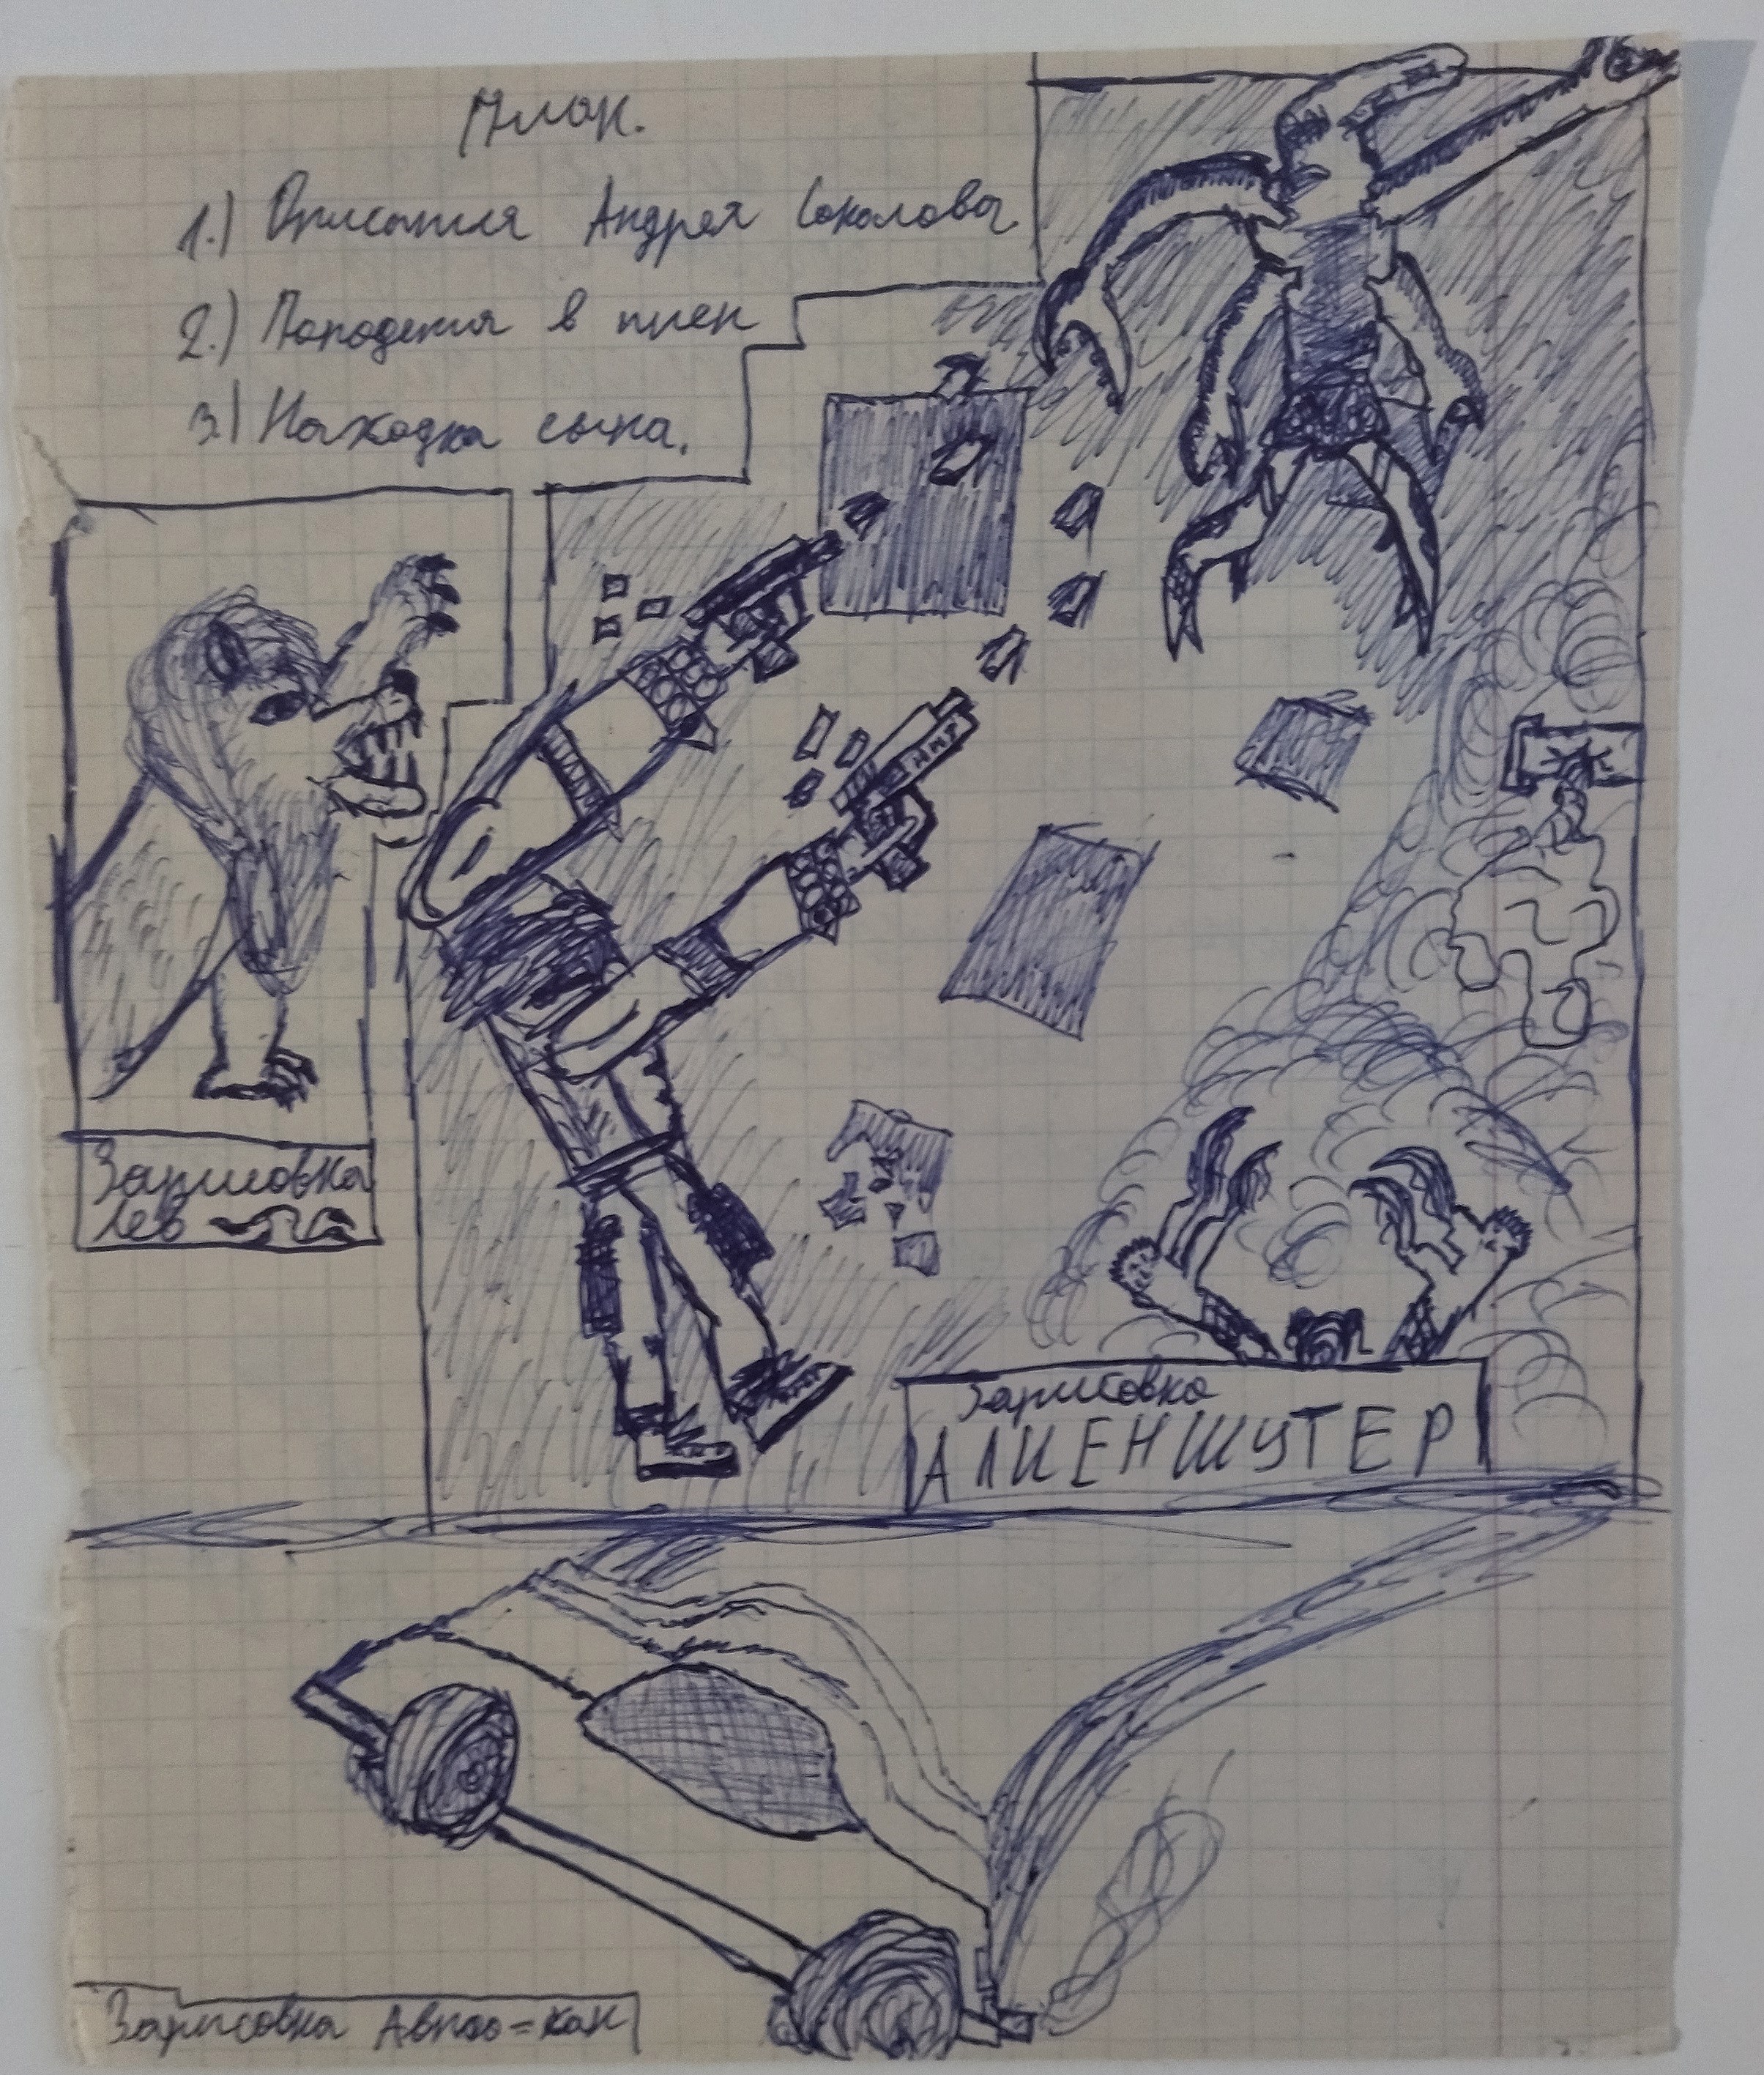 План.
1.) Описатия Андрея Соколова
2.) Попадения в плен
3.) Находка сына.
Зарисовка
лев
Зарисовка
АЛИЕНШУТЕР
Зарисовка Авто=хан